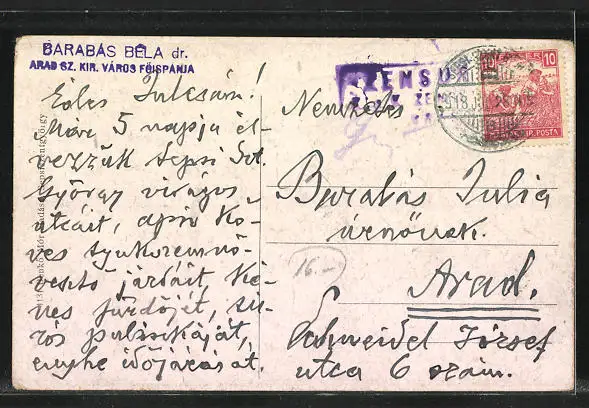 BARABÁS BÉLA dr.
ARAD SZ. KIR. VÁROS FŐISPÁNJA
Édes Julcsám!
Már 5 napja él-
vezzük Sepsi Szt.
György virágos
utcáit, apró kö-
ves tyukszemnö-
vesztő járdáit, ké-
nes fürdőjét, sű-
rös puliszkáját,
enyhe időjárását.
Nemzetes
Barabás Julia
úrnőnek.
Arad.
Schweidel József
utca 6 szám.
16.–
10
10
POSTA